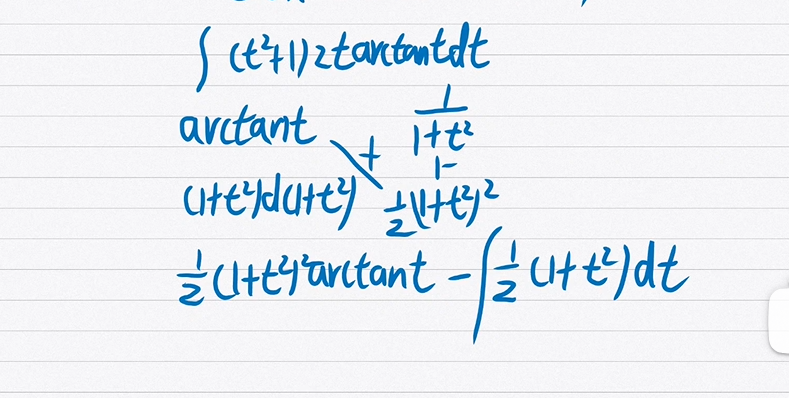 ∫ (t²+1) 2t arctant dt
arctant + 1/(1+t²)
(1+t²)d(1+t²) − ½(1+t²)²
½(1+t²)² arctant − ∫ ½ (1+t²) dt